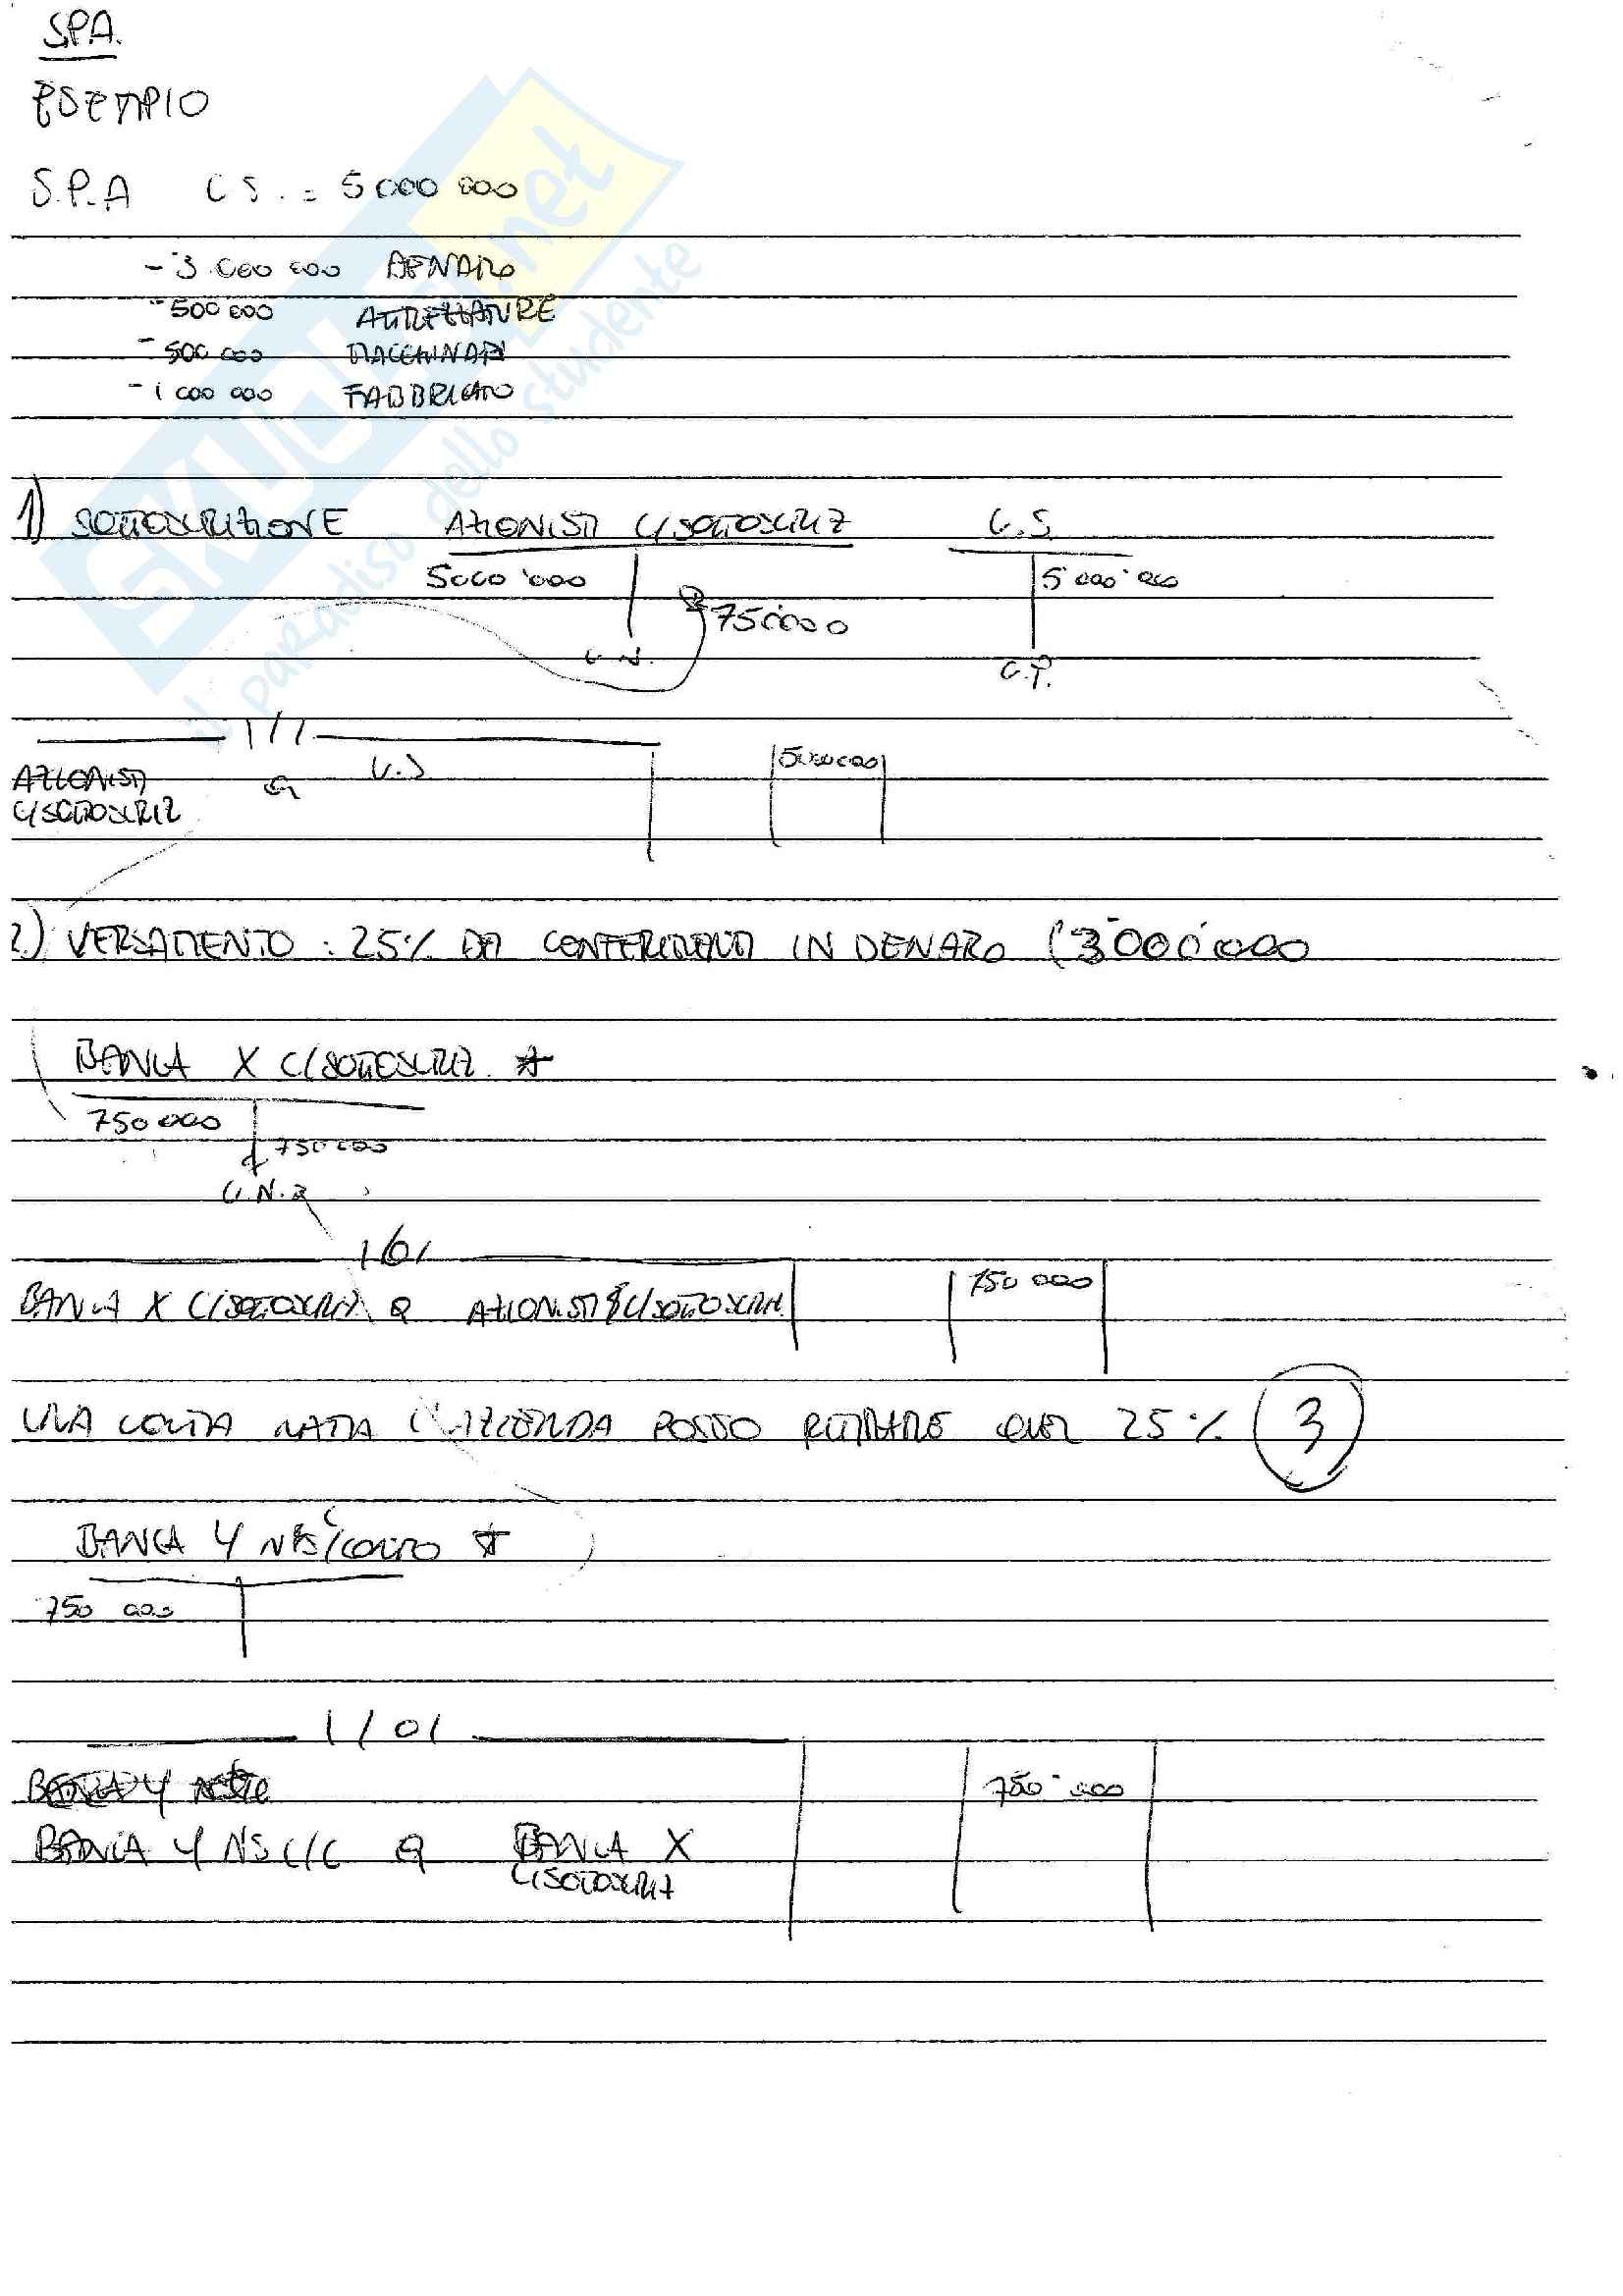 S.P.A.
ESEMPIO
S.P.A C.S. = 5 000 000
- 3.000 000 DENARO
- 500 000 ATTREZZATURE
- 500 000 MACCHINARI
- 1 000 000 FABBRICATO
1) SOTTOSCRIZIONE AZIONISTI C/SOTTOSCRIZ C.S.
5000'000 5'000'000
750'000
V.N. V.P.
1/1
AZIONISTI a C.S 5000000
C/SOTTOSCRIZ
2.) VERSAMENTO : 25% DEI CONFERIMENTI IN DENARO (3'000'000
BANCA X C/SOTTOSCRIZ. *
750 000
750 000
V.N.
1/01
BANCA X C/SOTTOSCRIZ a AZIONISTI C/SOTTOSCRIZ. 750 000
UNA VOLTA NATA L'AZIENDA POSSO RITIRARE QUEL 25% 3
BANCA Y NS C/CONTO *
750 000
1/01
750'000
BANCA Y NS C/C a BANCA X
C/SOTTOSCRIZ
SKUOLA.net
il paradiso dello studente